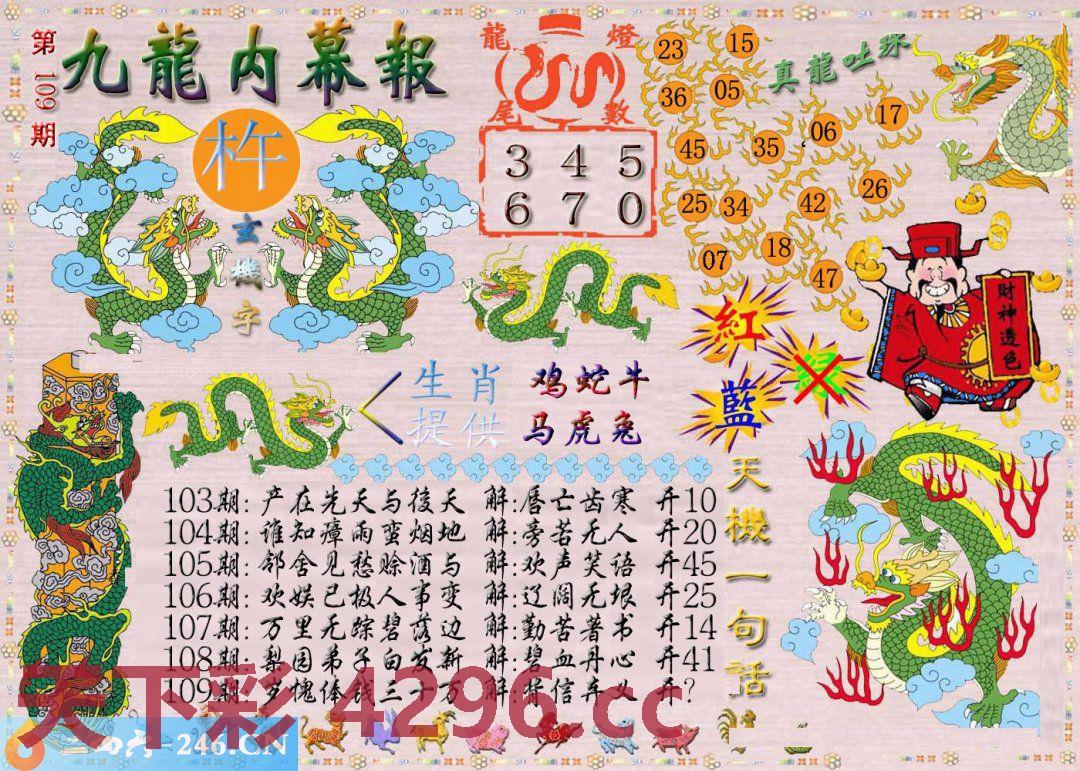 第109期
九龍内幕報
杵
玄機字
龍燈
尾數
3 4 5
6 7 0
真龍吐珠
23 15
36 05
45 35 06 17
25 34 42 26
07 18 47
財神透色
紅
綠
藍
生肖 鸡蛇牛
提供 马虎兔
天機一句话
103期: 产在先天与後天 解:唇亡齿寒 开10
104期: 谁知瘴雨蛮烟地 解:旁若无人 开20
105期: 邻舍见愁赊酒与 解:欢声笑语 开45
106期: 欢娱已极人事变 解:辽阔无垠 开25
107期: 万里无踪碧落边 解:勤苦著书 开14
108期: 梨园弟子白发新 解:碧血丹心 开41
109期: 岁愧俸钱三十万 解:背信弃义 开?
天下彩 4296.cc
246.CN